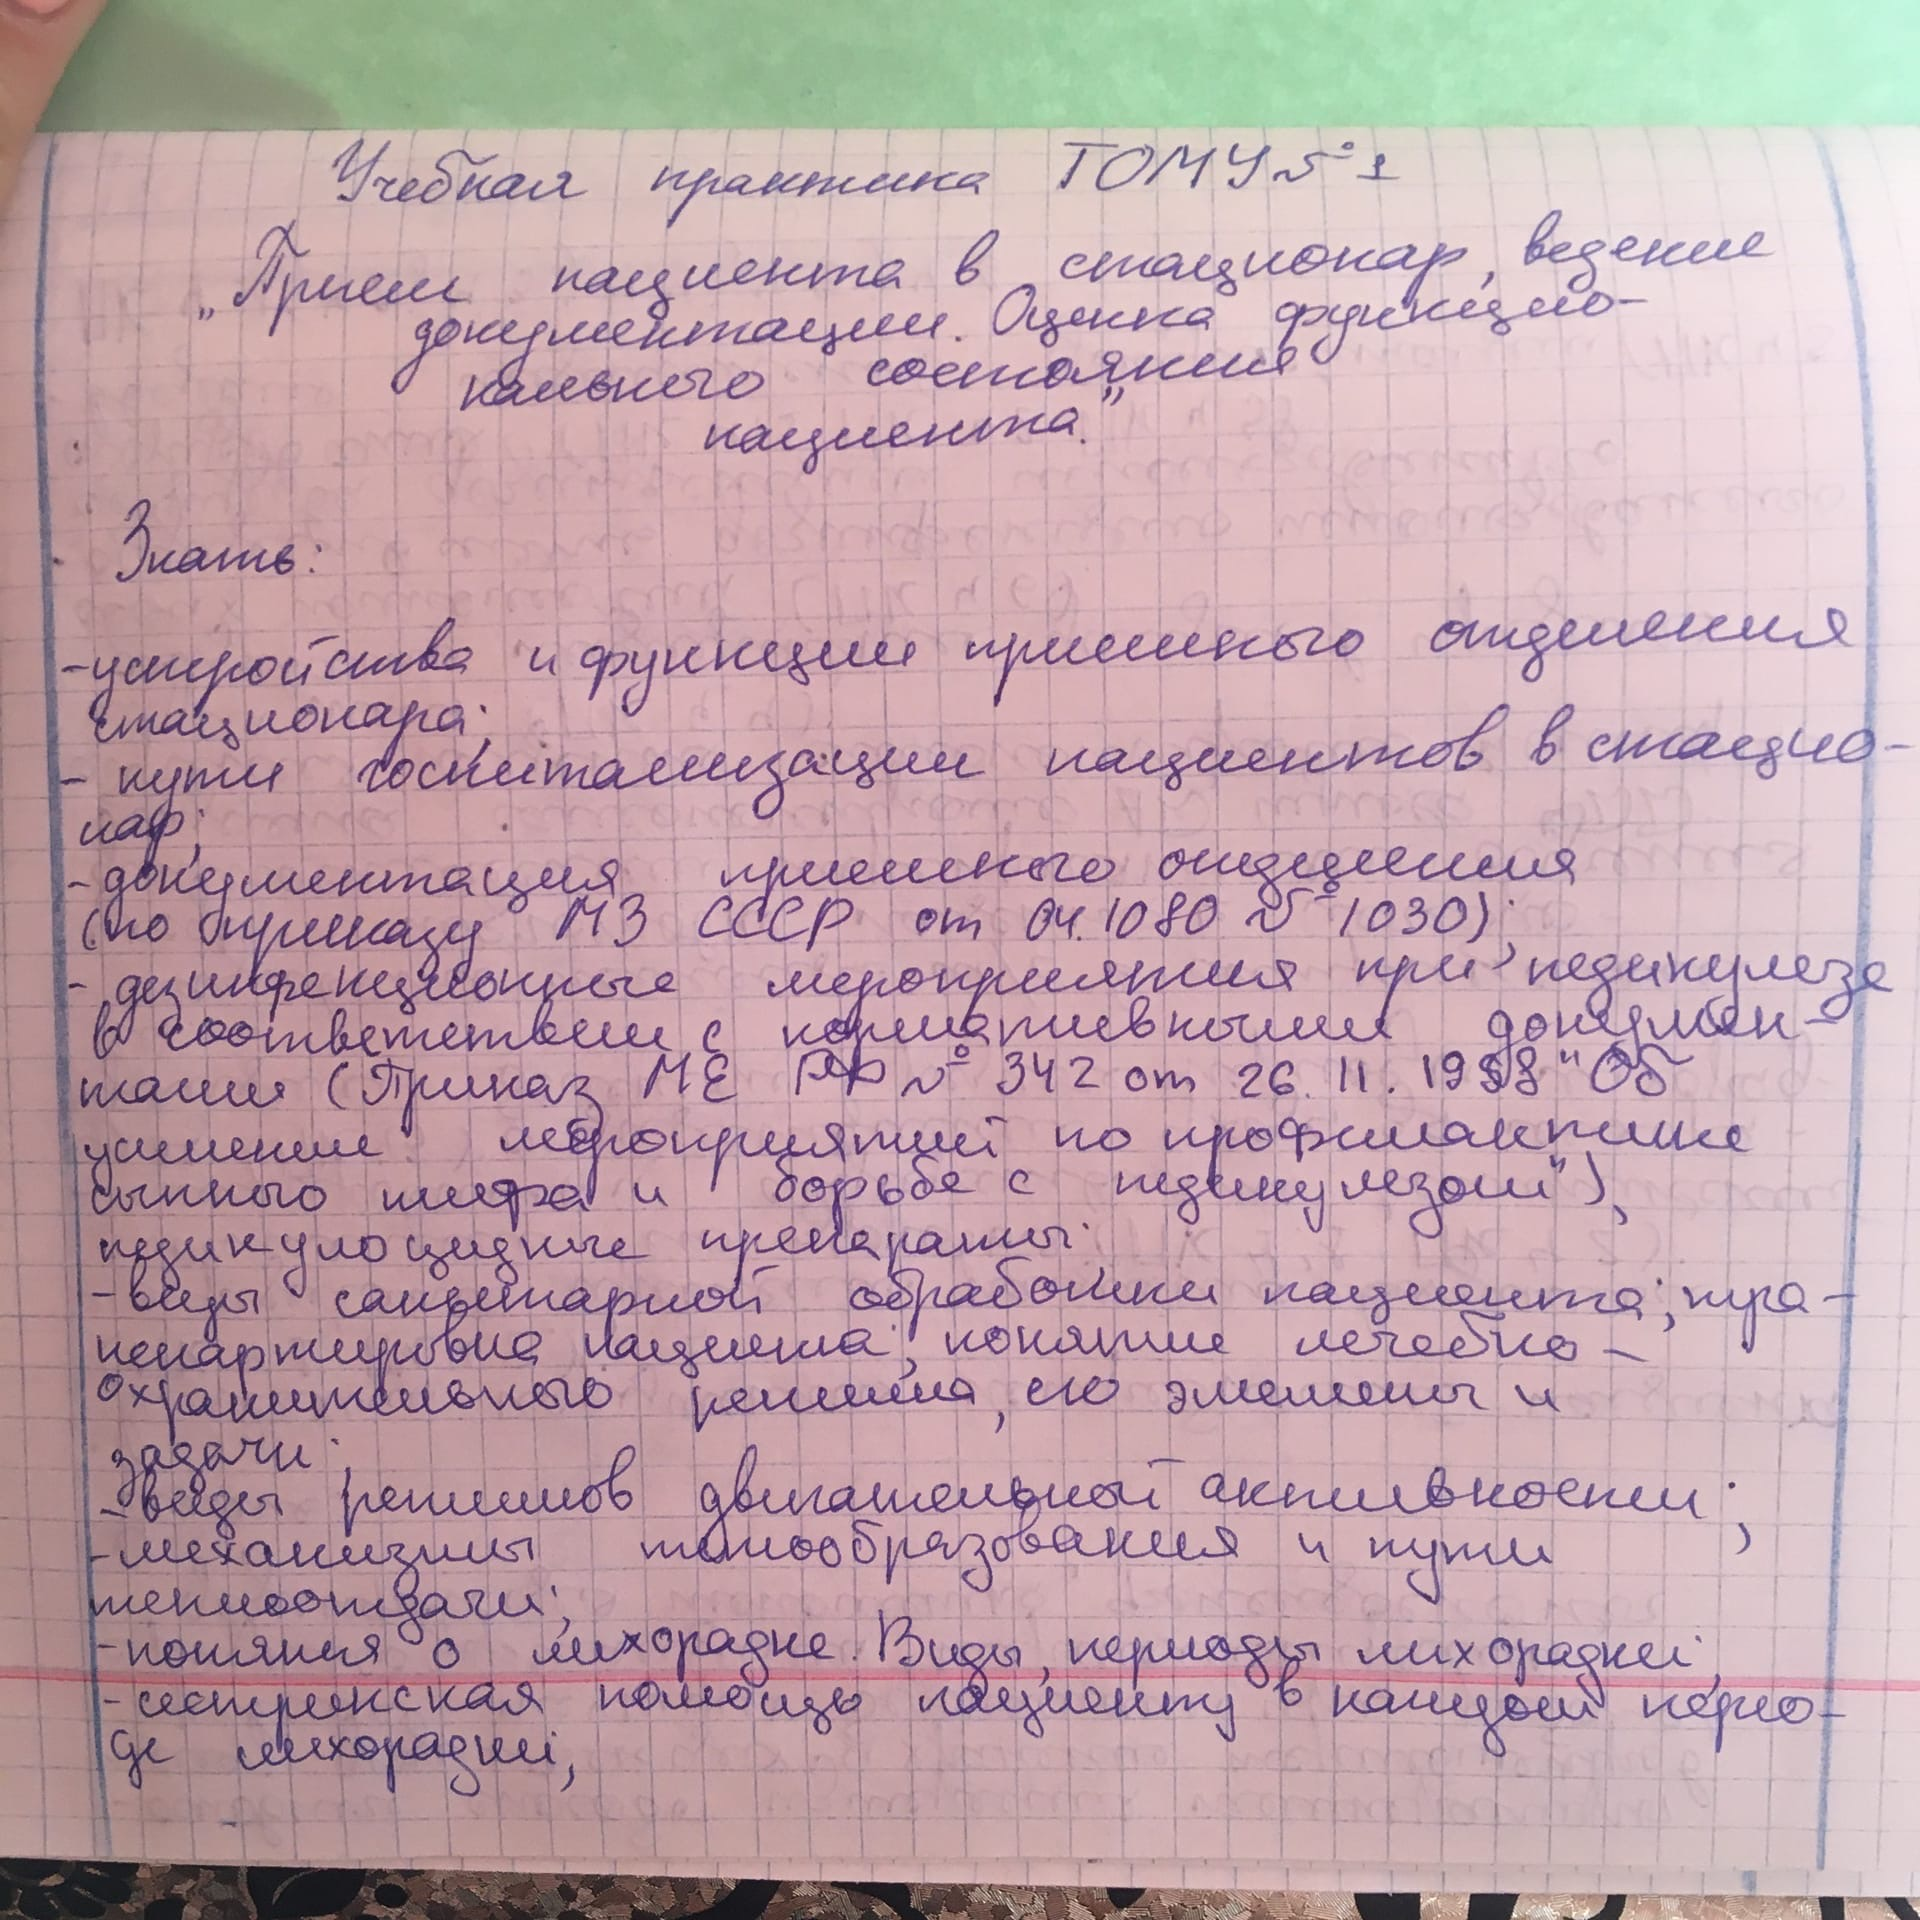 Учебная практика ТОМУ №1
„Прием пациента в стационар, ведение
документации. Оценка функцио-
нального состояния
пациента."
Знать:
-устройства и функции приемного отделения
стационара;
- пути госпитализации пациентов в стацио-
нар;
-документация приемного отделения
(по приказу МЗ СССР от 04.1080 №1030);
- дезинфекционные мероприятия при педикулезе
в соответствии с нормативными докумен-
тами (Приказ МЕ РФ № 342 от 26.11.1998 "Об
усилении мероприятий по профилактике
сыпного тифа и борьбе с педикулезом"),
педикулоцидные препараты.
-виды санитарной обработки пациента; тра-
нспортировка пациента; понятие лечебно-
охранительного режима, его элементы и
задачи;
-виды режимов двигательной активности;
-механизмы теплообразования и пути
теплоотдачи;
-понятия о лихорадке. Виды, периоды лихорадки;
-сестринская помощь пациенту в каждом перио-
де лихорадки,